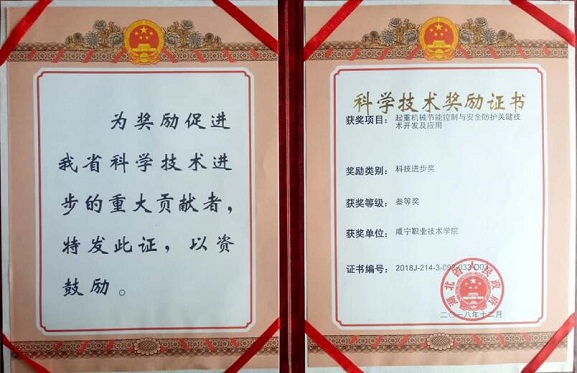 为奖励促进
我省科学技术进
步的重大贡献者，
特发此证，以资
鼓励。
科学技术奖励证书
获奖项目：起重机械节能控制与安全防护关键技
术开发及应用
奖励类别：科技进步奖
获奖等级：叁等奖
获奖单位：咸宁职业技术学院
证书编号：2018J-214-3-09
湖北省人民政府
二〇一八年十二月